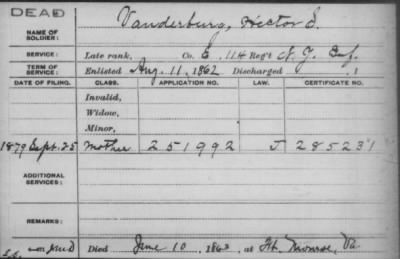 DEAD
NAME OF SOLDIER: Vanderburg, Hector S.
SERVICE: Late rank, Co. E, 11 Reg't N. J. Inf.
TERM OF SERVICE: Enlisted Aug. 11, 1862 Discharged , 1
DATE OF FILING. CLASS. APPLICATION NO. LAW. CERTIFICATE NO.
Invalid,
Widow,
Minor,
1879 Sept. 25 Mother 251992 J 285231
ADDITIONAL SERVICES:
REMARKS:
Died June 10, 1863, at Ft. Monroe, Va.